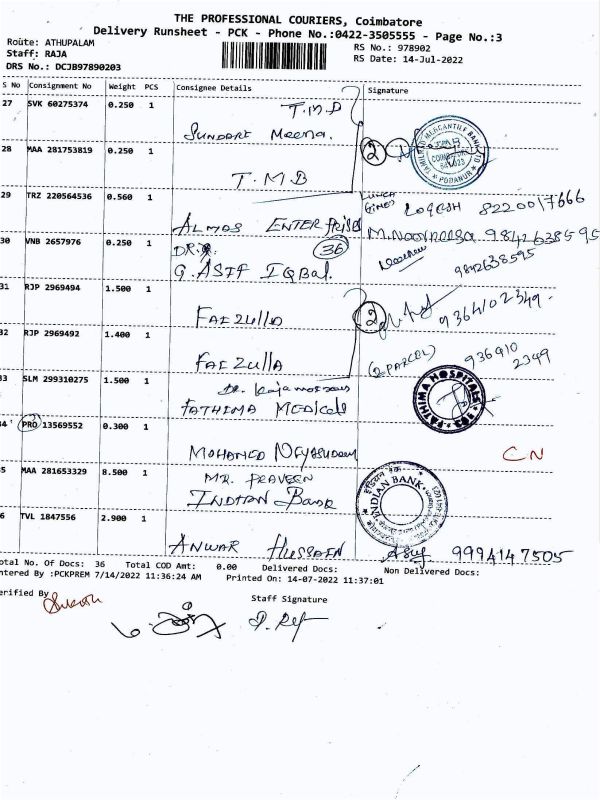 THE PROFESSIONAL COURIERS, Coimbatore
Delivery Runsheet - PCK - Phone No.:0422-3505555 - Page No.:3
Route: ATHUPALAM
Staff: RAJA
DRS No.: DCJB97890203
RS No.: 978902
RS Date: 14-Jul-2022
S No Consignment No Weight PCS Consignee Details Signature
27 SVK 60275374 0.250 1 T.M.B
Sundari Meena.
28 MAA 281753819 0.250 1 2
T.M.B
29 TRZ 220564536 0.560 1 LOGESH 8220017666
ALMAS ENTERPRISES
30 VNB 2657976 0.250 1 DR. 36 M.Noorneesa 9842638595
G. ASIF IQBAL. 9842638595
31 RJP 2969494 1.500 1 2 9364102349.
FAIZULLA
32 RJP 2969492 1.400 1 (2 PARCEL) 936410
2349
FAIZULLA
33 SLM 299310275 1.500 1 Dr.
FATHIMA MEDICALS FATHIMA HOSPITALS
34 PRO 13569552 0.300 1
MOHAMED CN
35 MAA 281653329 8.500 1 MR. PRAVEEN
INDIAN BANK INDIAN BANK
36 TVL 1847556 2.900 1
ANWAR HUSSAIN 9994147505
Total No. Of Docs: 36 Total COD Amt: 0.00 Delivered Docs: Non Delivered Docs:
Entered By :PCKPREM 7/14/2022 11:36:24 AM Printed On: 14-07-2022 11:37:01
Verified By
Staff Signature